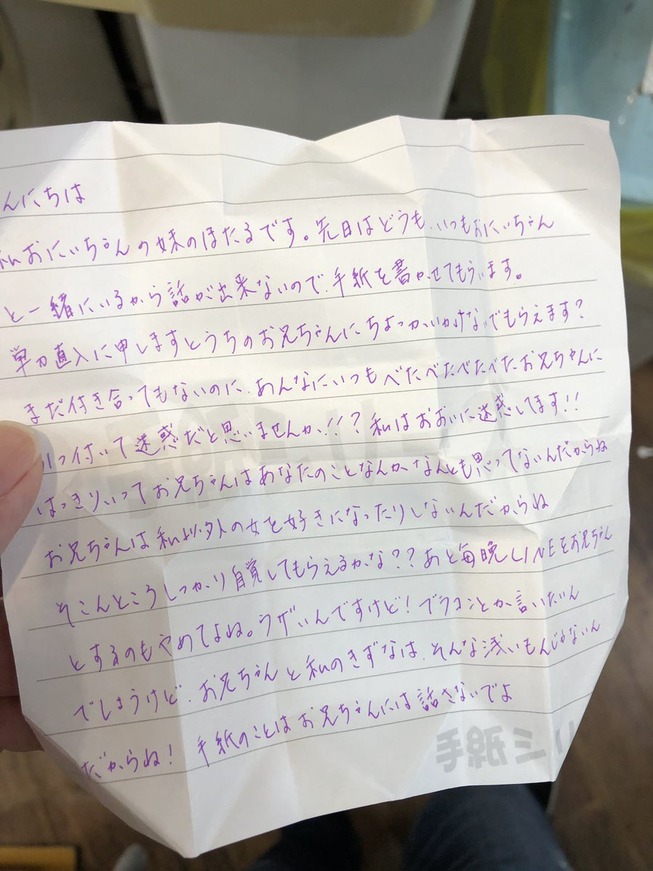 んにちは
私おにいちゃんの妹のほたるです。先日はどうも、いつもおにいちゃん
と一緒にいるから話が出来ないので、手紙を書かせてもらいます。
単刀直入に申しますとうちのお兄ちゃんにちょっかいかけないでもらえます?
まだ付き合ってもないのに、あんなにいつもべたべたべたべたお兄ちゃんに
引っ付いて迷惑だと思いませんか!!?私はおおいに迷惑してます!!
はっきりいってお兄ちゃんはあなたのことなんかなんとも思ってないんだからね
お兄ちゃんは私以外の女を好きになったりしないんだからね
そこんところしっかり自覚してもらえるかな??あと毎晩LINEをお兄ちゃん
とするのもやめてよね。うざいんですけど!ブラコンとか言いたいん
でしょうけど、お兄ちゃんと私のきずなは、そんな浅いもんじゃないん
だからね!手紙のことはお兄ちゃんには話さないでよ
手紙ミリ